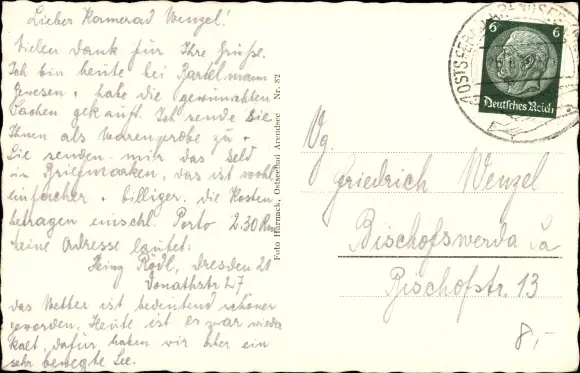 Lieber Kamerad Wenzel!
Vielen Dank für Ihre Grüße.
Ich bin heute bei Bartelmann
gewesen + habe die gewünschten
Sachen gekauft. Ich sende sie
Ihnen als Warenprobe zu +
Sie senden mir das Geld
in Briefmarken, das ist wohl
einfacher + billiger. Die Kosten
betragen einschl. Porto 2.30 Rm
Meine Adresse lautet:
Heinz Rödl, Dresden 21
27
das Wetter ist bedeutend schöner
geworden. Heute ist es zwar wieder
kalt, dafür haben wir aber ein
sehr bewegte See.
Foto Harnack, Ostseebad Arendsee Nr. 82
OSTSEEBAD ARENDSEE
6 6
Deutsches Reich
Friedrich Wenzel
Bischofswerda
Bischofstr. 13
8,-